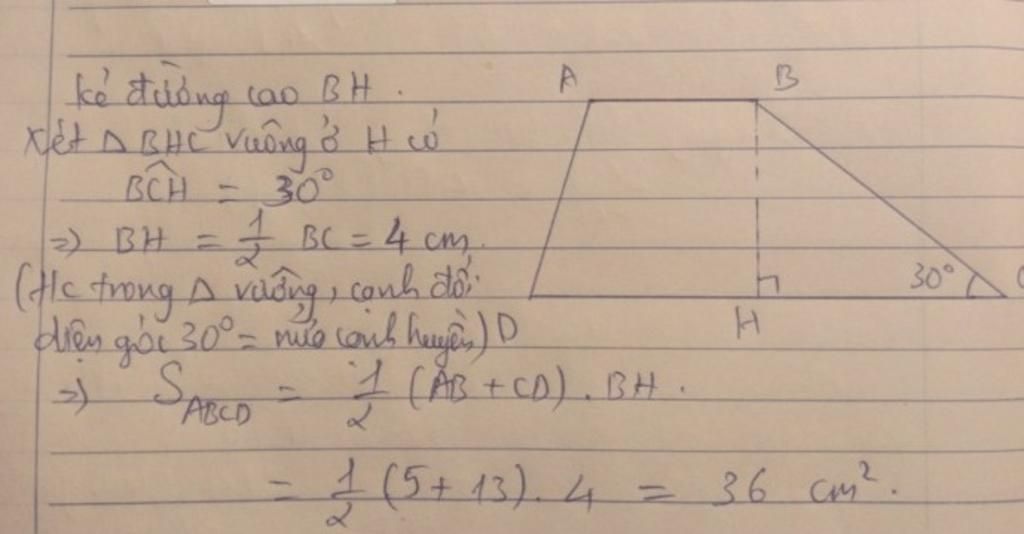 kẻ đường cao BH.
Xét Δ BHC vuông ở H có
BCH = 30°
=> BH = 1/2 BC = 4 cm.
(t/c trong Δ vuông, cạnh đối
diện góc 30° = nửa cạnh huyền)
=> S_ABCD = 1/2 (AB + CD) . BH.
= 1/2 (5 + 13) . 4 = 36 cm².
A B
30° C
D H